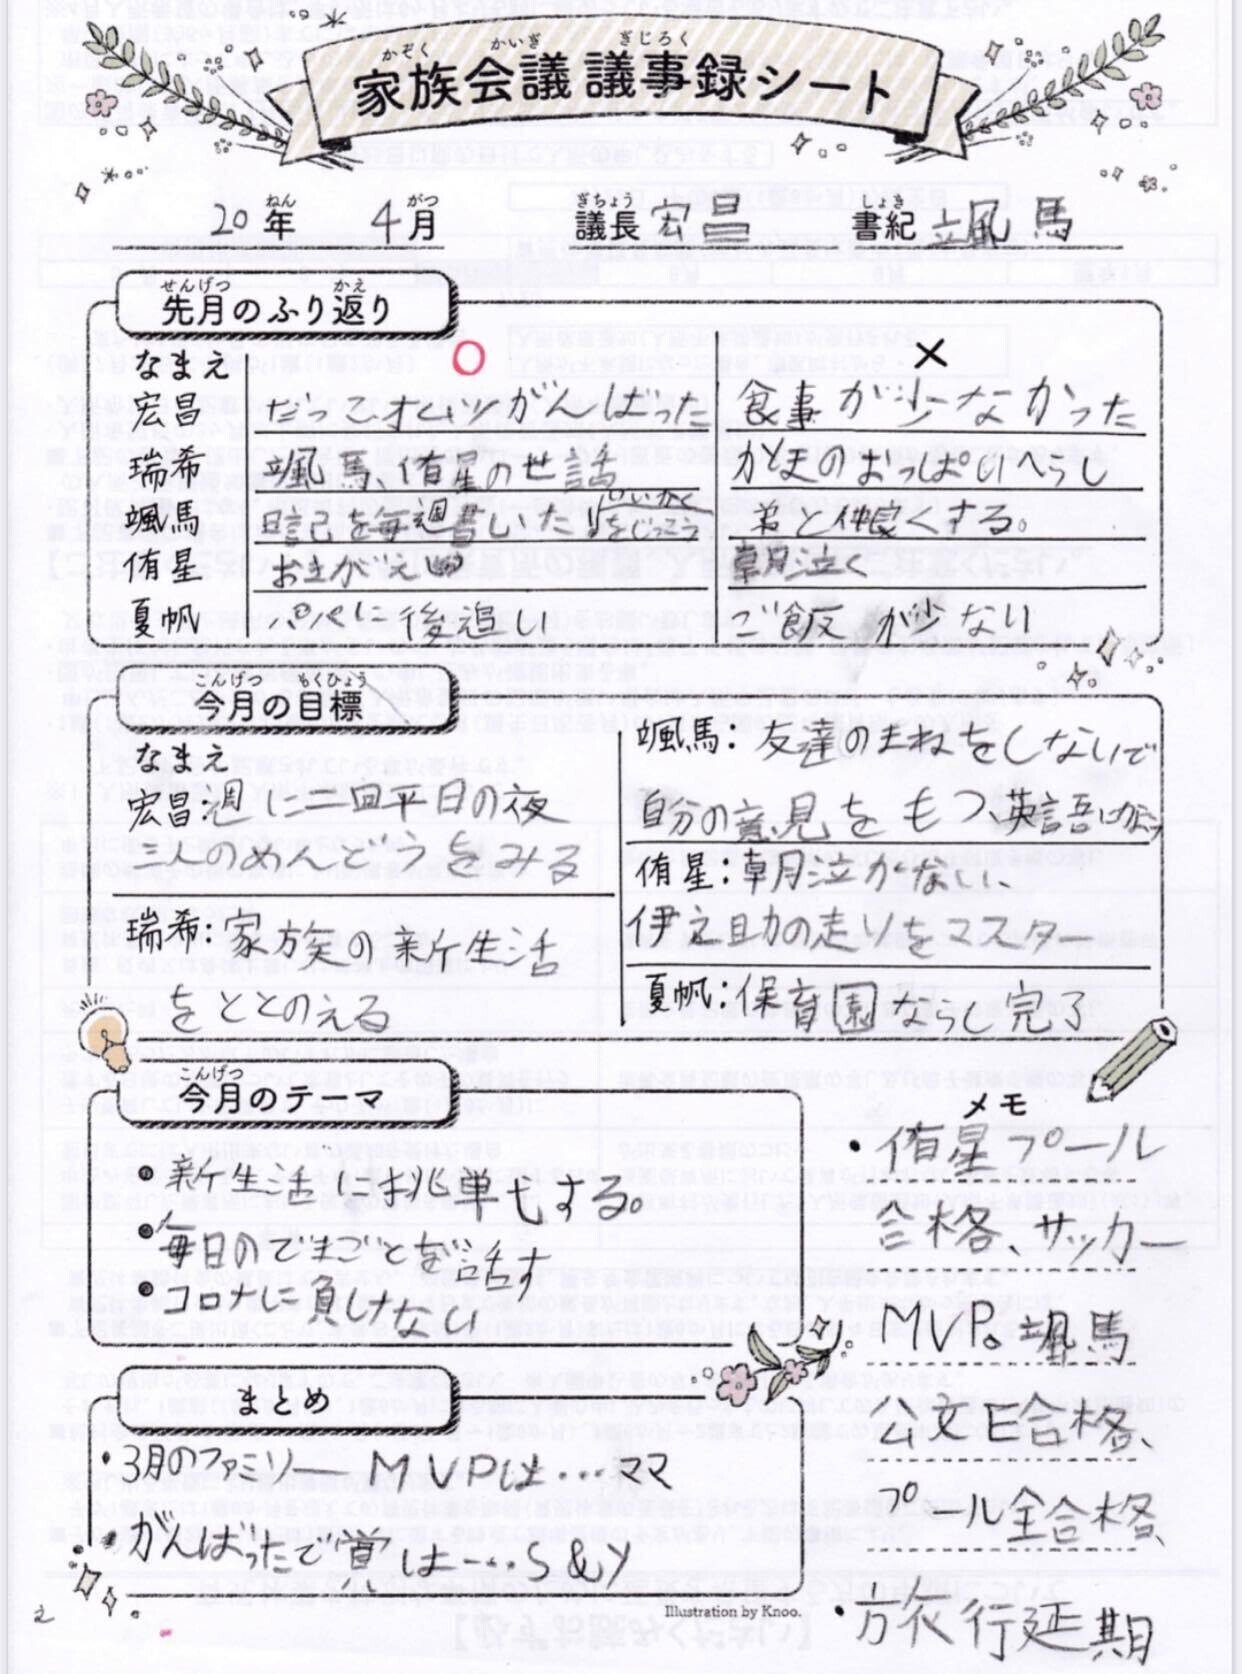 家族会議 議事録シート
かぞく かいぎ ぎじろく
20年 4月 議長 宏昌 書紀 颯馬
ねん がつ ぎちょう しょき
先月のふり返り
せんげつ かえ
なまえ ○ ×
宏昌 だっておいがんばった 食事が少なかった
瑞希 颯馬 侑星の世話 かたまのおっぱいへらし
颯馬 日記を毎週書いたり 君と仲良くする。
侑星 おきがえ 朝泣く
夏帆 後追い ご飯が少ない
今月の目標
こんげつ もくひょう
なまえ
宏昌:週に一回平日の夜
一人のめんどうをみる
瑞希:家族の新生活
をととのえる
颯馬:友達のまねをしないで
自分の意見をもつ 英語
侑星:朝泣かない、
伊之助の走りをマスター
夏帆:保育園ならし完了
今月のテーマ
こんげつ
・新生活に挑戦する。
・毎日のできごとを話す
・コロナに負けない
まとめ
・3月のファミリー MVPは…ママ
がんばったで賞は…S&Y
メモ
・侑星プール
合格、サッカー
MVP。颯馬
公文E合格、
プール全合格、
・旅行延期
Illustration by Knoo.